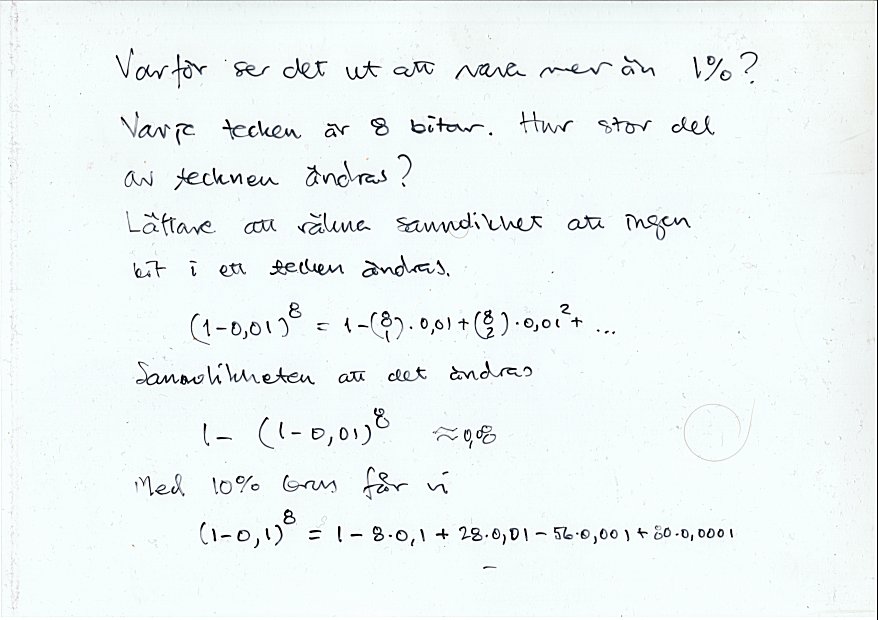 Varför ser det ut att vara mer än 1%?
Varje tecken är 8 bitar. Hur stor del
av tecknen ändras?
Lättare att räkna sannolikhet att ingen
bit i ett tecken ändras.
(1-0,01)^8 = 1-(8 1)·0,01+(8 2)·0,01^2+ ...
Sannolikheten att det ändras
1- (1-0,01)^8 ≈0,08
Med 10% brus får vi
(1-0,1)^8 = 1-8·0,1+28·0,01-56·0,001+80·0,0001
-